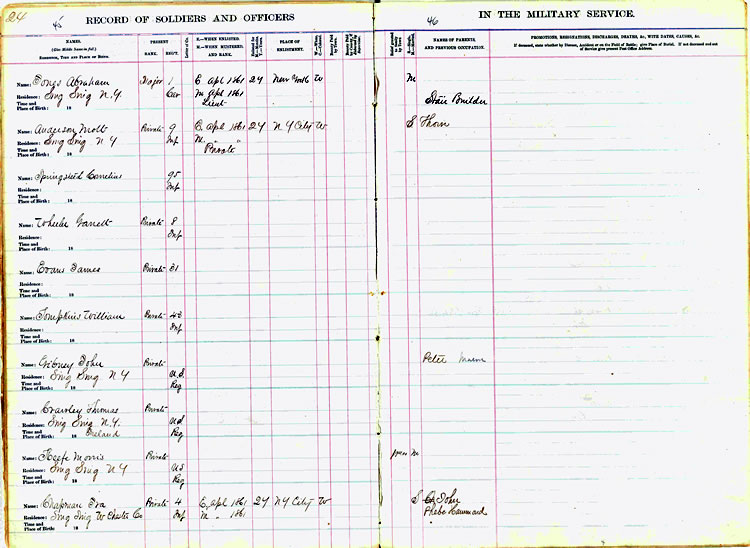 24
45
RECORD OF SOLDIERS AND OFFICERS
NAMES.
(Give Middle Name in full.)
RESIDENCE, TIME AND PLACE OF BIRTH.
PRESENT
RANK. REG'T.
E.—WHEN ENLISTED.
M.—WHEN MUSTERED,
AND RANK.
PLACE OF
ENLISTMENT.
Name: Abraham Major 1 E Apl 1861 24 New York W
Residence: Sing Sing N.Y. Cav M Apl 1861
Time and Lieut
Place of Birth: 18
Name: Anderson Mott Private 9 E Apl 1861 24 N Y City W
Residence: Sing Sing N Y Inf M " "
Time and Private
Place of Birth: 18
Name: Springsteed Cornelius 95
Residence: Inf
Time and
Place of Birth: 18
Name: Wheeler Garrett Private 8
Residence: Inf
Time and
Place of Birth: 18
Name: Evans James Private 31
Residence:
Time and
Place of Birth: 18
Name: Tompkins William Private 42
Residence: Inf
Time and
Place of Birth: 18
Name: Gibney John Private
Residence: Sing Sing N Y U S
Time and Reg
Place of Birth: 18
Name: Crawley Thomas Private
Residence: Sing Sing N.Y. U S
Time and Ireland Reg
Place of Birth: 18
Name: Keefe Morris Private
Residence: Sing Sing N Y U S
Time and Reg
Place of Birth: 18
Name: Chapman Ira Private 4 E Apl 1861 24 N Y City W
Residence: Sing Sing W Chester Co Inf M " 1861
Time and
Place of Birth: 18
46
IN THE MILITARY SERVICE.
NAMES OF PARENTS,
AND PREVIOUS OCCUPATION.
PROMOTIONS, RESIGNATIONS, DISCHARGES, DEATHS, &c., WITH DATES, CAUSES, &c.
If deceased, state whether by Disease, Accident or on the Field of Battle; give Place of Burial. If not deceased and out
of Service give present Post Office Address.
M
Stair Builder
S
Peter
M
S John
Phebe Hammond